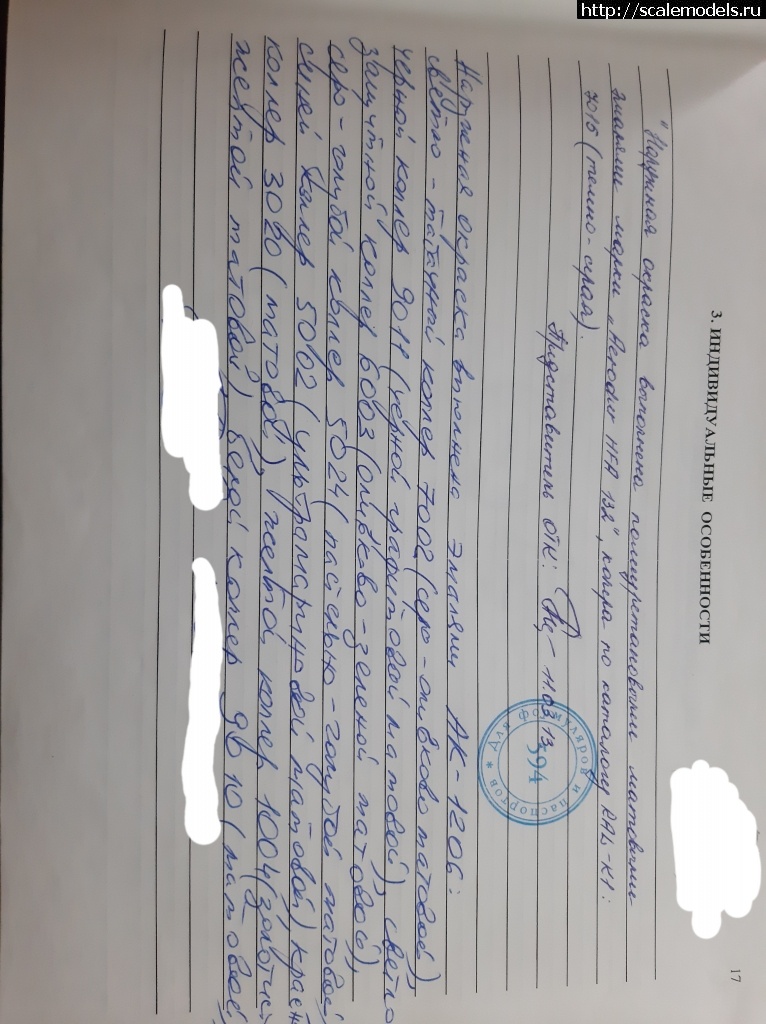 http://scalemodels.ru
17
3. ИНДИВИДУАЛЬНЫЕ ОСОБЕННОСТИ
"Наружная окраска выполнена полиуретановыми матовыми
эмалями марки „Аеродur HFA 132", колера по каталогу RAL-К1:
7015 (темно-серая).
Представитель ОТК: 11 03 13
Для формуляров и паспортов * 394
Наружная окраска выполнена эмалями АК-1206:
светло-табачный колер 7002 (серо-оливково матовой),
черной коллер 9011 (черной графитовой матовой), светло
защитной коллер 6003 (оливково-зеленой матовой),
серо-голубой коллер 5024 (пастельно-голубой матовой)
синей коллер 5002 (ультрамариновой матовой) красн
коллер 3020 (матовой), желтой коллер 1004 (золотис
желтой матовой) белой коллер 9010 (матовой)